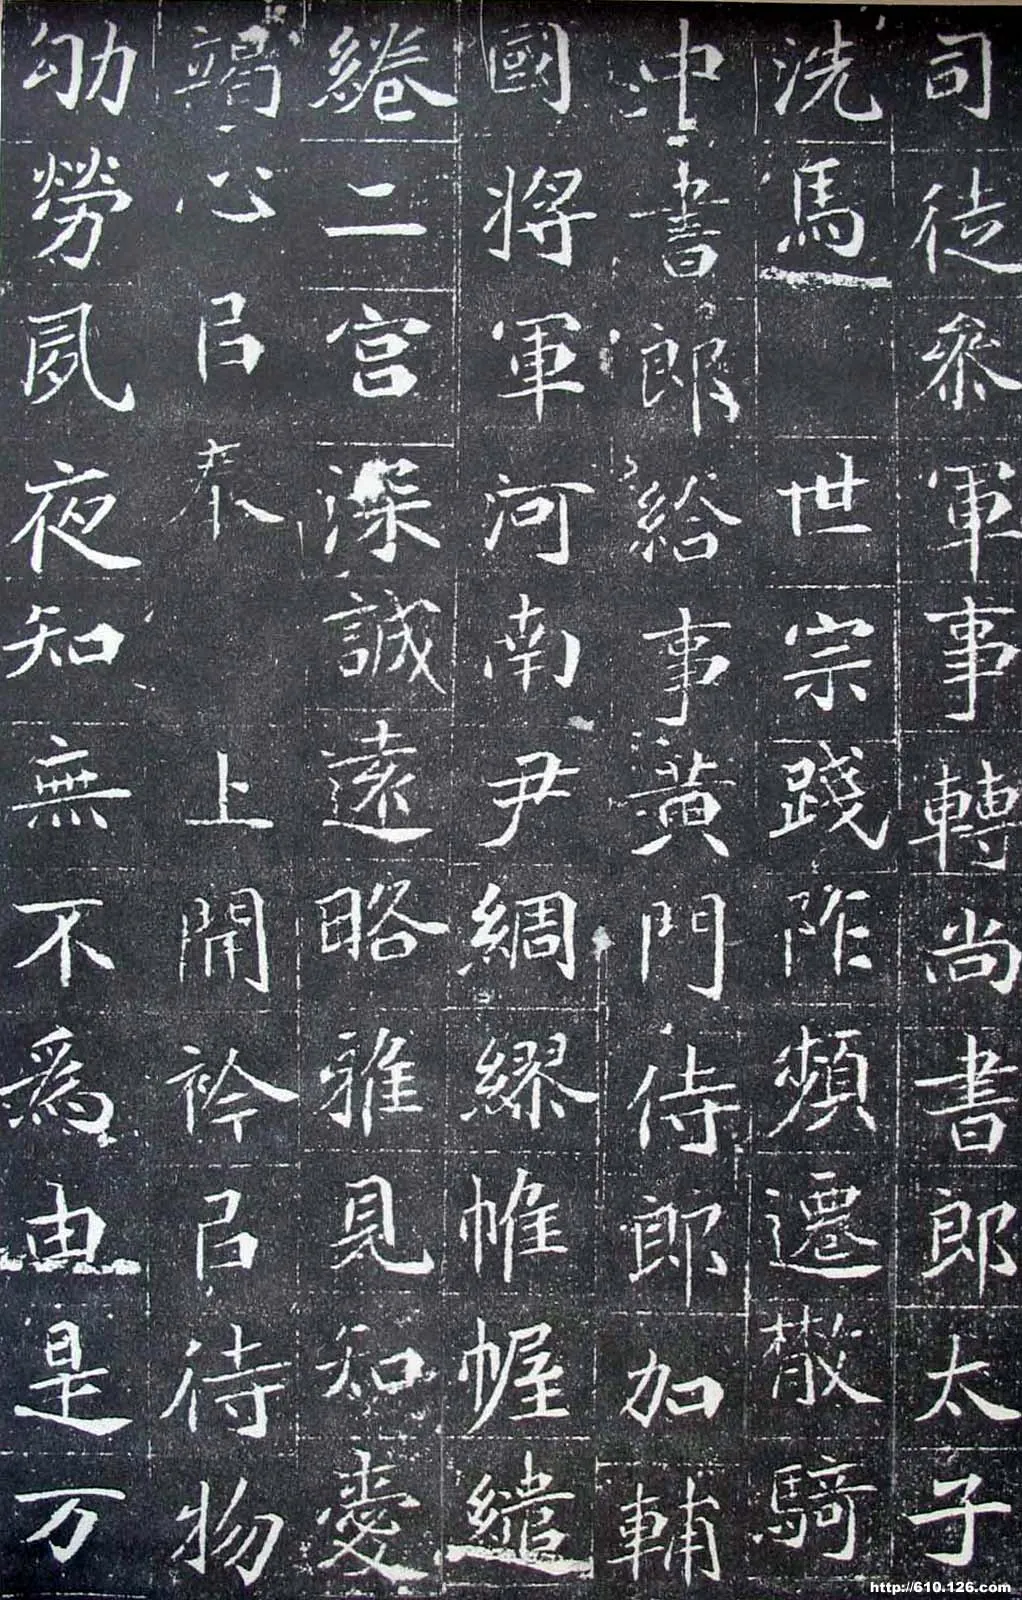 司徒叅軍事轉尚書郎太子
洗馬世宗踐阼頻遷散騎
中書郎給事黃門侍郎加輔
國將軍河南尹綢繆帷幄繾
綣二宮深誠遠略雅見知愛
竭心㠯奉上開衿㠯待物
劬勞夙夜知無不爲由是万
http://610.126.com